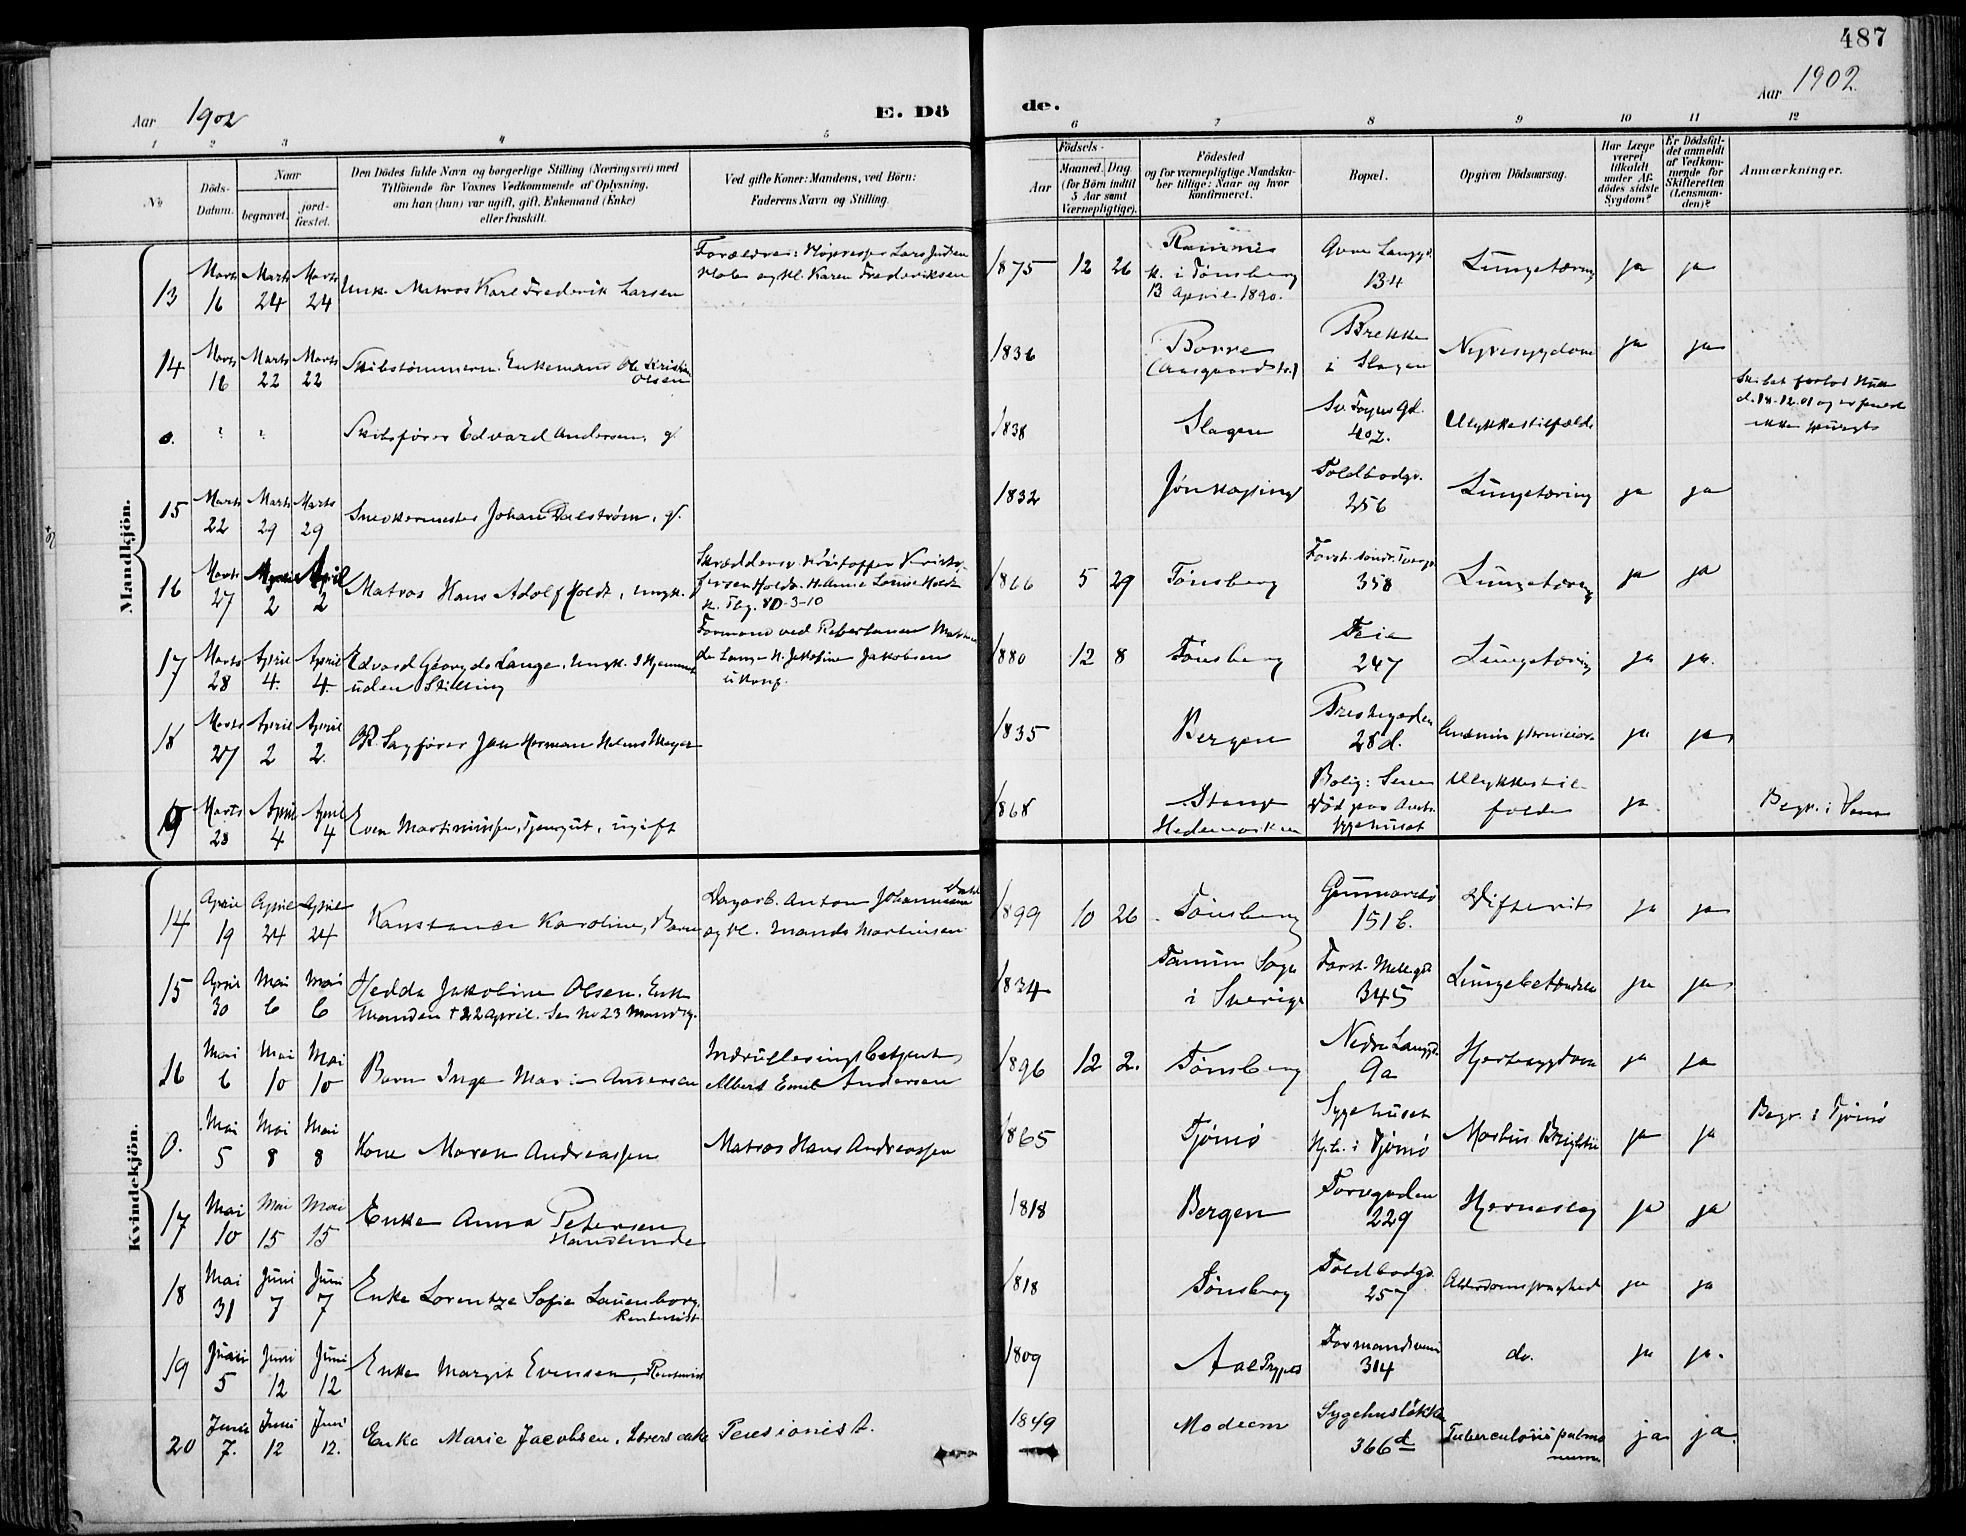 487
Aar 1902
E. Dö
de.
Aar 1902
1 2 3 4 5 6 7 8 9 10 11 12
No
Döds-Datum.
Naar
begravet.
jord-fæstet.
Den Dödes fulde Navn og borgerlige Stilling (Næringsvei) med
Tilföiende for Voxnes Vedkommende af Oplysning,
om han (hun) var ugift, gift, Enkemand (Enke)
eller fraskilt.
Ved gifte Koner: Mandens, ved Börn:
Faderens Navn og Stilling.
Födsels-
Aar
Maaned. Dag.
(for Börn indtil
5 Aar samt
Værnepligtige).
Födested
og for værnepligtige Mandska-
ber tillige: Naar og hvor
konfirmeret.
Bopæl.
Opgiven Dödsaarsag.
Har Læge
været
tilkaldt
under Af-
dödes sidste
Sygdom?
Er Dödsfal-
det anmeldt
af Vedkom-
mende for
Skifteretten
(Lensman-
den)?
Anmærkninger.
Mandkjön.
13 Marts 16 Marts 24 Marts 24 Ungk. Matros Karl Frederik Larsen
Forældre: Lars Karen Frederiksen
1875 12 26 Ramnes k. i Tønsberg 13 April 1890. 134 Lungetæring ja ja
14 Marts 16 Marts 22 Marts 22 Skibstømmerm. Enkemand Ole Kristian Olsen
1836 Borre (Aasgaardstr.) Brekke i Slagen Nyresygdom ja ja
0. Skibsfører Edvard Andersen, g.
1838 Slagen Sv. Foyns Gd. 407. Ulykkestilfælde
Skibet forlod d. 18-12-01 og er senere ikke spurgt
15 Marts 22 Marts 29 Marts 29 Snedkermester Johan Dalström, g.
1832 Jönkøping Toldbodgd. 256 Lungetæring ja ja
16 Marts 27 April 2 April 2 Matros Hans Adolf Holdt, ungk.
1866 5 29 Tønsberg 358 Lungetæring ja ja
17 Marts 28 April 4. April 4. Edvard Georg de Lange, Ungk. I Hjemmet uden Stilling
Formand ved Reberbanen de Lange H. Josefine Jakobsen
1880 12 8 Tønsberg Feie 247 Lungetæring ja ja.
18 Marts 27 April 2 April 2. OR. Sagfører Jan Herman Helms Meyer
1835 Bergen 28d. Anæmia perniciosa ja ja
19 Marts 28 April 4 April 4 Even Martiniussen, Tjenergut, ugift
1868 Stange Hedemarken Bolig: Sem Død paa Amts Sygehuset Ulykkestilfælde ja
Begr. i Sem
Kvindekjön.
14 April 19 April 24 April 24 Konstance Karoline, Barn
Dagarb. Anton Johannesen og H. Martinsen
1899 10 26 Tønsberg 151b. Difterit ja ja
15 April 30 Mai 6 Mai 6 Hedda Jakobine Olsen. Enke Manden † 22 April. Se No 23 Mandkj.
1834 Tanum Sogn i Sverige 345 Lungebetændelse ja ja
16 Mai 6 Mai 10 Mai 10 Barn Inga Marie Andersen
Indrulleringsbetjent Albert Emil Andersen
1896 12 2. Tønsberg Nedre Langgd. 9a Hjertesygdom ja ja
0. Mai 5 Mai 8 Mai 8 Kone Maren Andreassen
Matros Hans Andreassen
1865 Tjømø Sygehuset i Tjømø Morbus Brightii ja ja
Begr. i Tjømø
17 Mai 10 Mai 15 Mai 15 Enke Anna Petersen Handlende
1818 Bergen Torvgaden 229 Hjerneslag ja ja
18 Mai 31 Juni 7 Juni 7 Enke Lorentze Sofie Lauenborg, Rentenist
1818 Tønsberg Toldbodgd. 257 Alderdomssvaghed ja ja
19 Juni 5 Juni 12 Juni 12 Enke Margit Evensen, Rentenist
1809 Aal Formandsveien 314 do. ja ja.
20 Juni 7. Juni 12 Juni 12. Enke Marie Jacobsen,
Pensionist.
1849 Modum Sygehusløkken 366d Tuberculosis pulmonum ja ja.